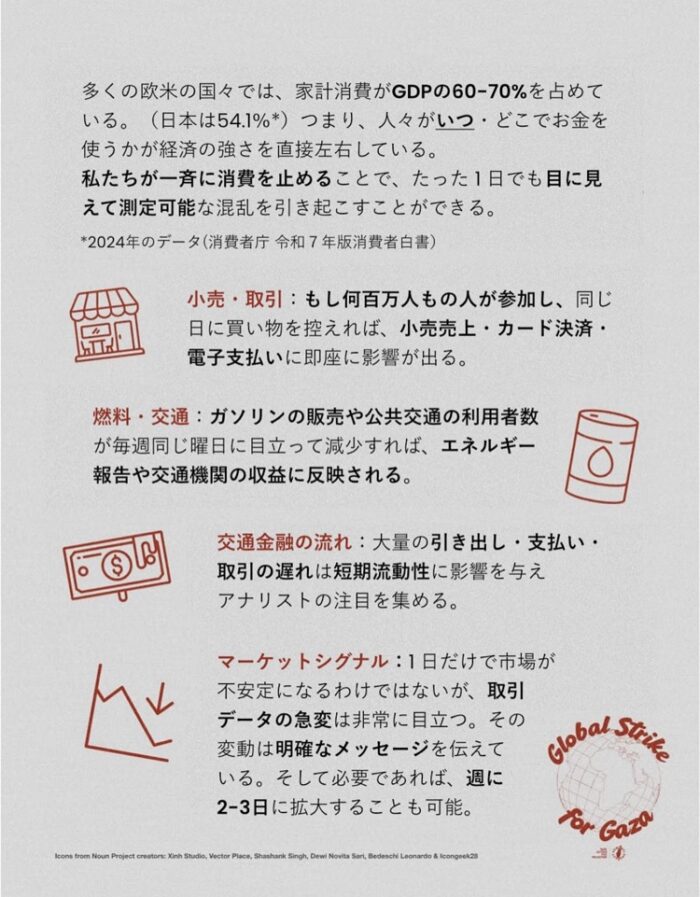 多くの欧米の国々では、家計消費がGDPの60-70%を占めて
いる。（日本は54.1%*）つまり、人々がいつ・どこでお金を
使うかが経済の強さを直接左右している。
私たちが一斉に消費を止めることで、たった1日でも目に見
えて測定可能な混乱を引き起こすことができる。
*2024年のデータ(消費者庁 令和７年版消費者白書)
小売・取引：もし何百万人もの人が参加し、同じ
日に買い物を控えれば、小売売上・カード決済・
電子支払いに即座に影響が出る。
燃料・交通：ガソリンの販売や公共交通の利用者数
が毎週同じ曜日に目立って減少すれば、エネルギー
報告や交通機関の収益に反映される。
交通金融の流れ：大量の引き出し・支払い・
取引の遅れは短期流動性に影響を与え
アナリストの注目を集める。
マーケットシグナル：1日だけで市場が
不安定になるわけではないが、取引
データの急変は非常に目立つ。その
変動は明確なメッセージを伝えて
いる。そして必要であれば、週に
2-3日に拡大することも可能。
Global Strike
for Gaza
Icons from Noun Project creators: Xinh Studio, Vector Place, Shashank Singh, Dewi Novita Sari, Bedeschi Leonardo & Icongeek28